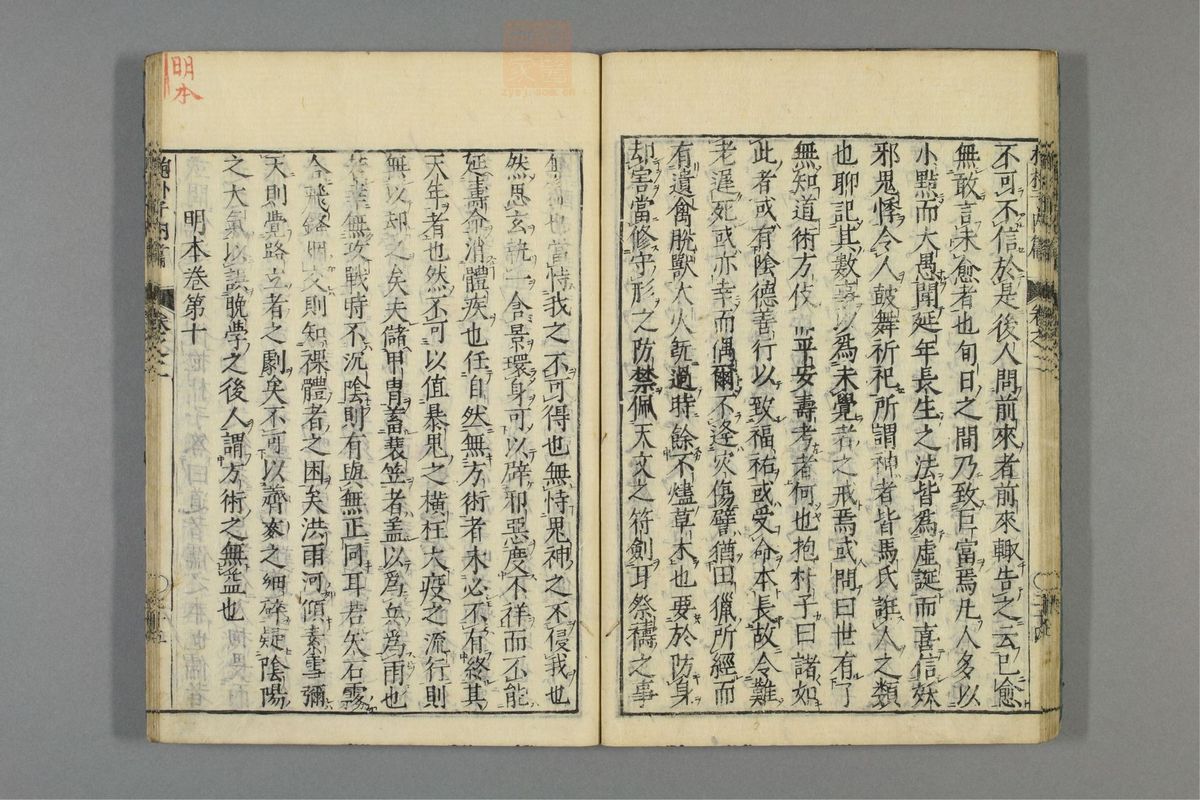 不可不信於是後人問前來者前來輙告之云已愈
無敢言未愈者也旬日之間乃致巨富焉凡人多以
小黠而大愚聞延年長生之法皆為虛誕而喜信妖
邪鬼怪令人鼓舞祈祀所謂神者皆馬氏誑人之類
也聊記其數事以為未覺者之戒焉或問曰世有了
無知道術方伎 平安壽考者何也抱朴子曰諸如
此者或有陰德善行以致福祐或受命本長故令難
老遲死或亦幸而偶爾不逢灾傷譬猶田獵所經而
有遺禽脫獸大火既過時餘不燼草木也要於防身
却害當修守形之防禁佩天文之符劍耳祭禱之事
無益也當恃我之不可得也無恃鬼神之不侵我也
然思玄執一含景環身可以辟邪惡度不祥而不能
延壽命消體疾也任自然無方術者未必不有終其
天年者也然不可以值暴鬼之橫枉大疫之流行則
無以却之矣夫儲甲胄蓄蓑笠者盖以為兵為雨也
若幸無攻戰時不沉陰則有與無正同耳若矢石霧
合飛鋒烟交則知裸體者之困矣洪雨河傾素雪彌
天則覺路立者之劇矣不可以薺麥之細碎疑陰陽
之大氣以誤晚學之後人謂方術之無益也
明本卷第十
抱朴子內篇
明本